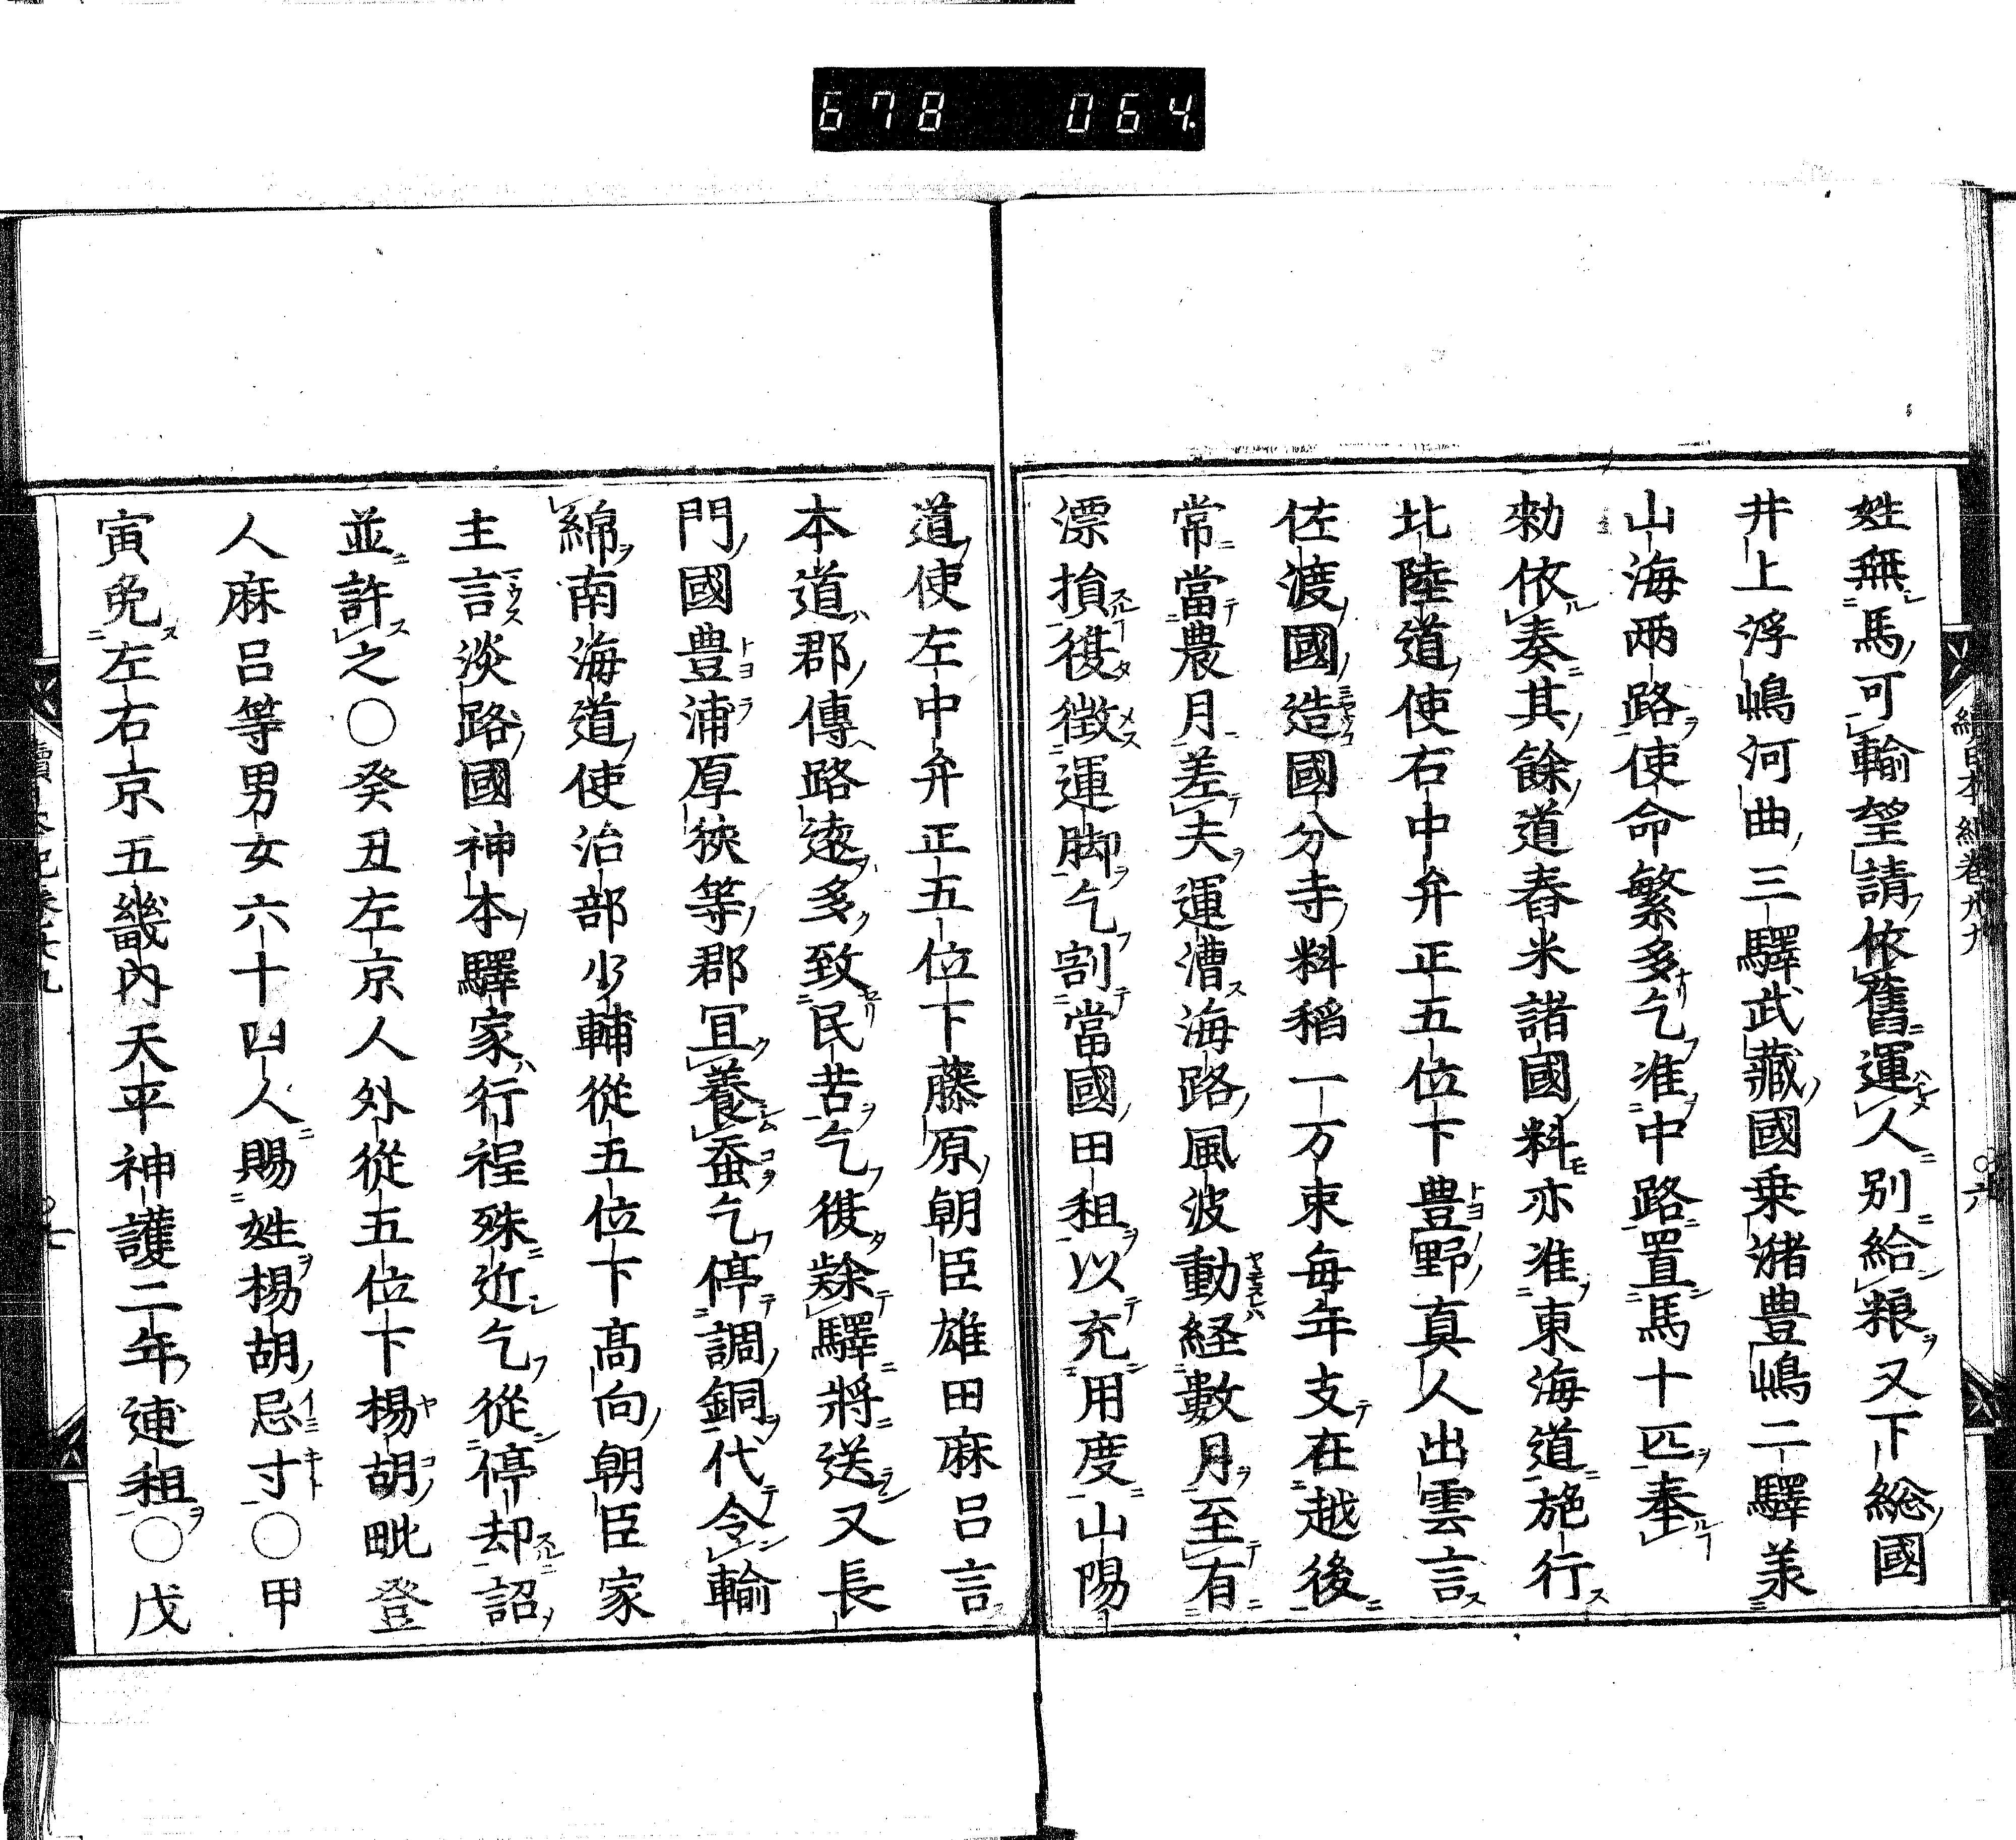 678 064
姓無馬可輸望請依舊運人別給粮又下総國
井上浮嶋河曲三驛武藏國乗潴豊嶋二驛羕
山海兩路使命繁多乞准中路置馬十匹奉
勑依奏其餘道舂米諸國料亦准東海道施行
北陸道使右中弁正五位下豊野真人出雲言
佐渡國造國分寺料稲一万束毎年支在越後
常當農月差夫運漕海路風波動経數月至有
漂損復徴運脚乞割當國田租以充用度山陽
道使左中弁正五位下藤原朝臣雄田麻呂言
本道郡傳路遠多致民苦乞復隸驛將送又長
門國豊浦厚狹等郡冝養蚕乞停調銅代令輸
綿南海道使治部少輔從五位下髙向朝臣家
主言淡路國神本驛家行程殊近乞從停却詔
並許之〇癸丑左京人外從五位下楊胡毗登
人麻呂等男女六十四人賜姓楊胡忌寸〇甲
寅免左右京五畿内天平神護二年逋租〇戊